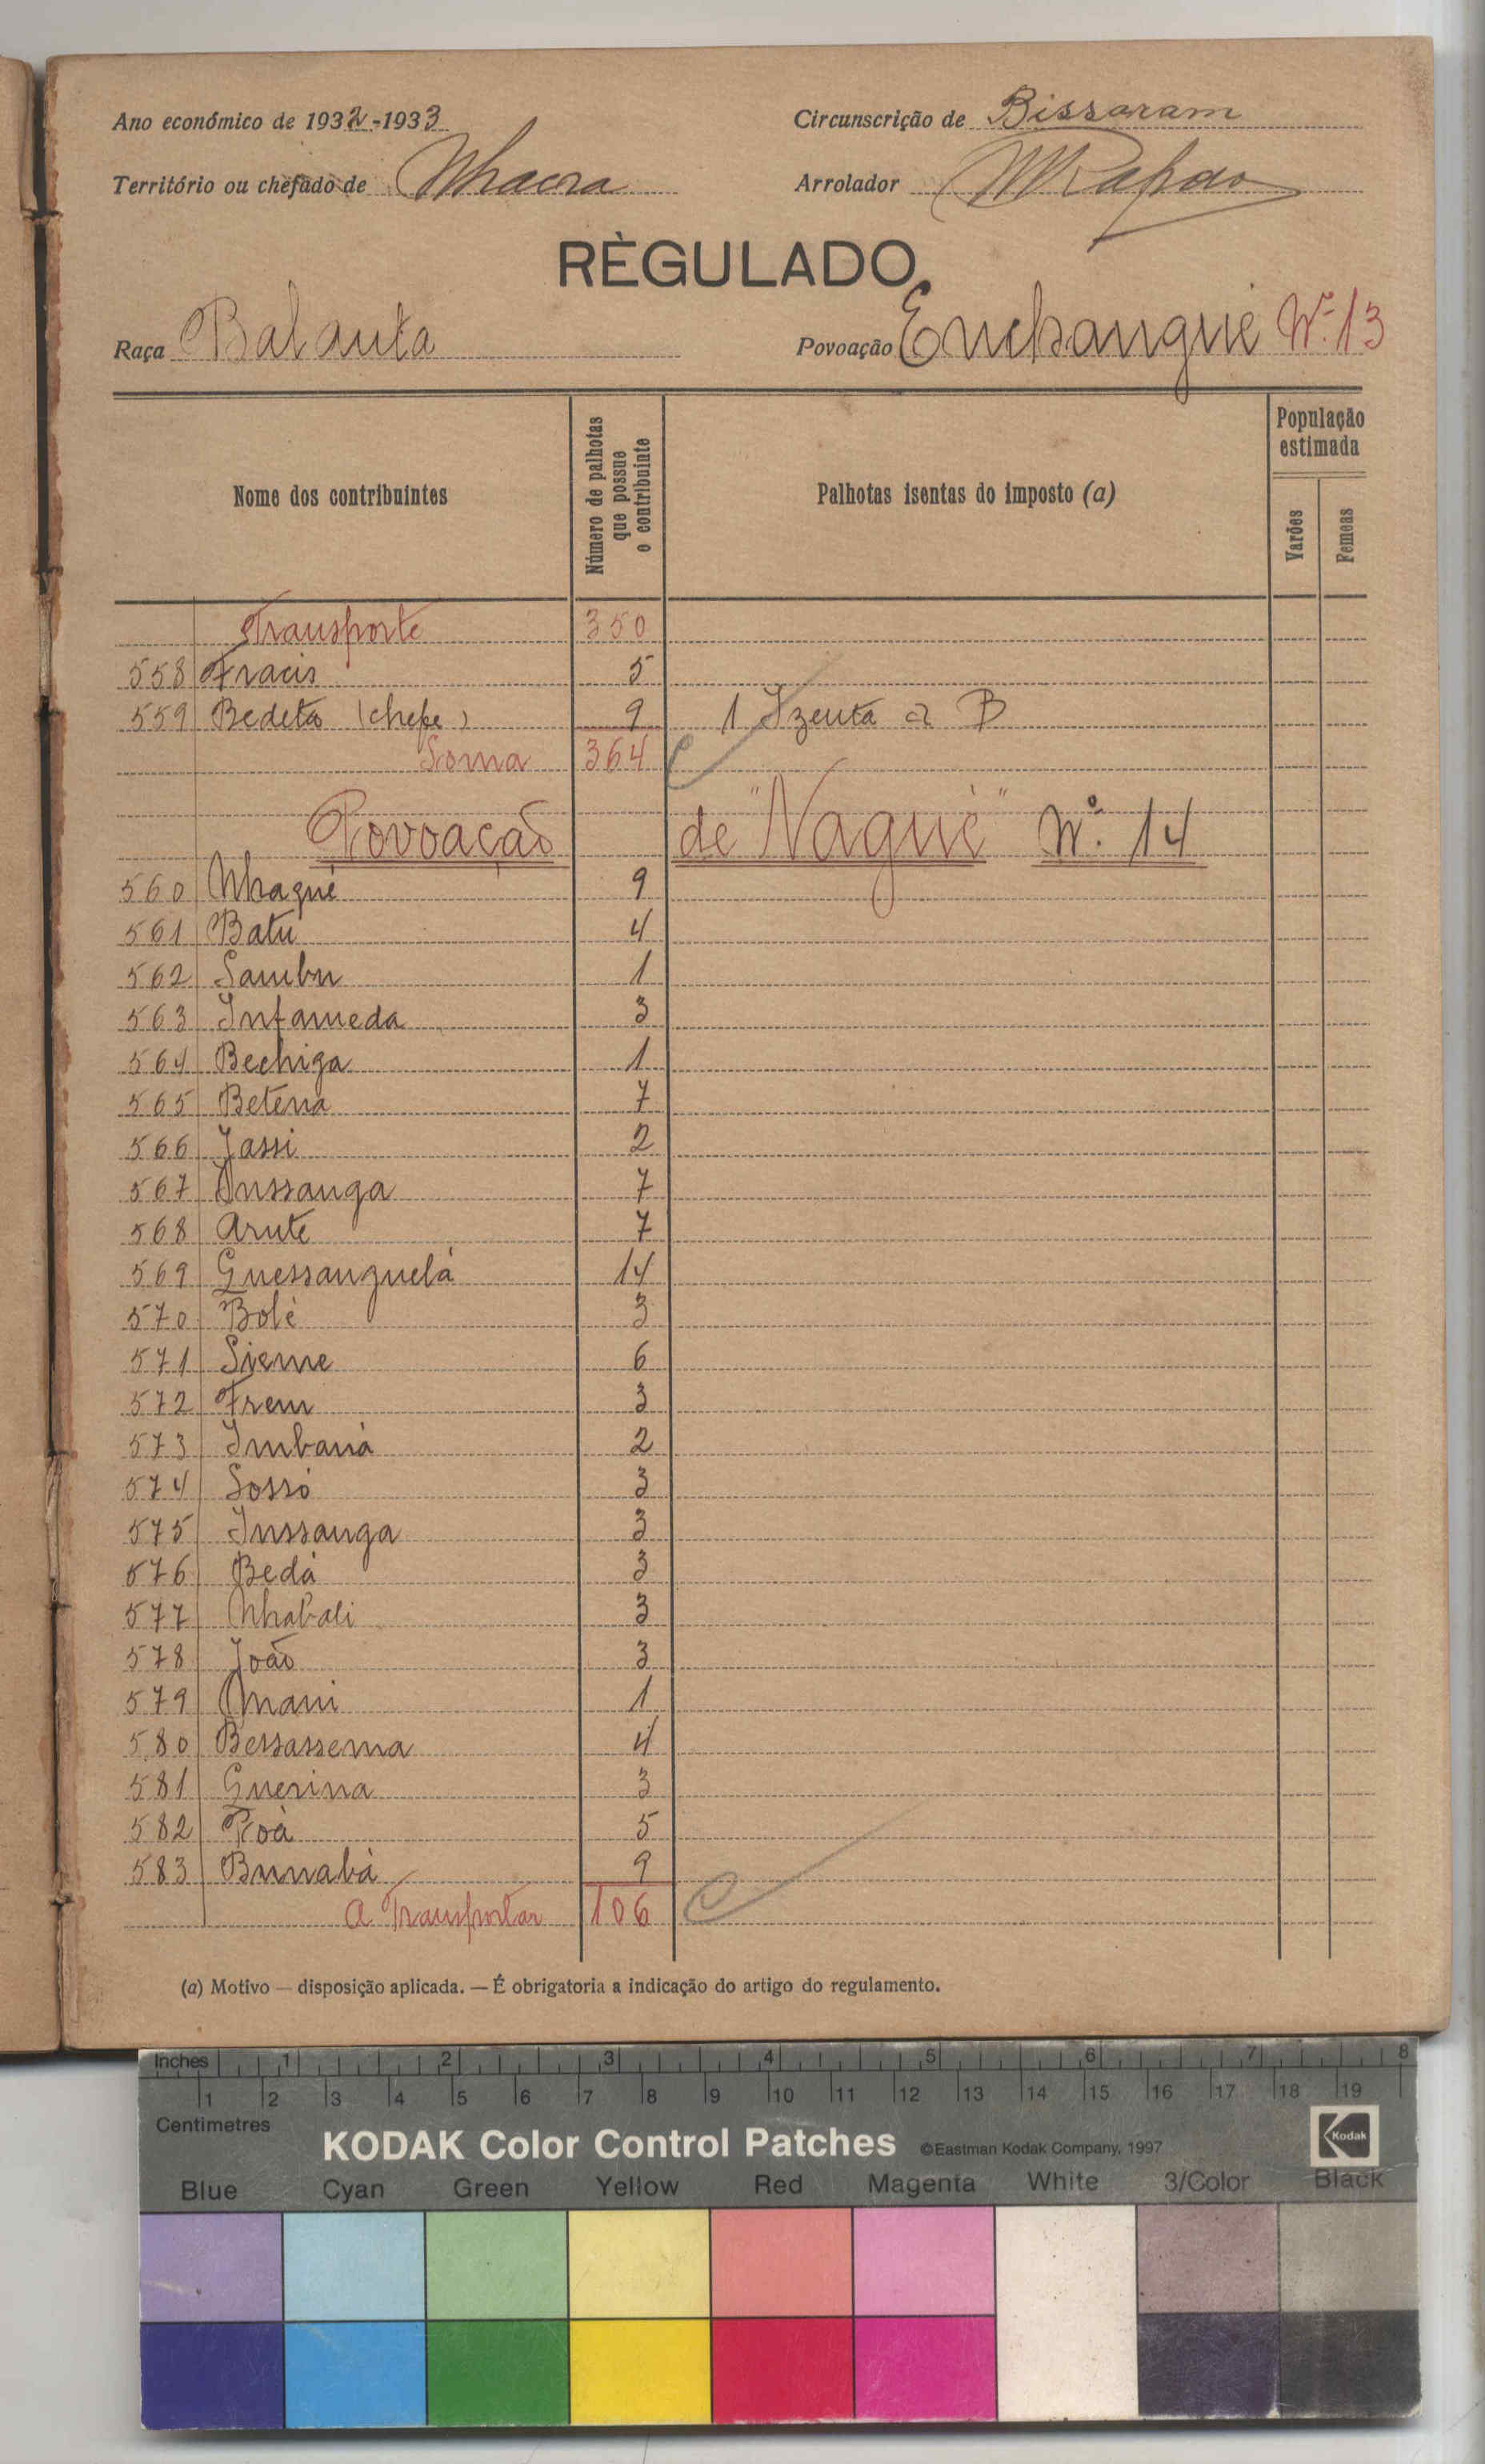 Ano económico de 1932-1933
Circunscrição de Bissoram
Território ou chefado de Nhacra
Arrolador
RÈGULADO
Raça Balanta
Povoação Enchangue Nº 13
Nome dos contribuintes
Número de palhotas que possue o contribuinte
Palhotas isentas do imposto (a)
População estimada
Varões
Femeas
Transporte 350
558 Fracis 5
559 Bedeta (chefe) 9 1 Izenta a B
Soma 364
Povoação de "Nagué" Nº 14
560 Nhagué 9
561 Batu 4
562 Sambu 1
563 Infameda 3
564 Bechiga 1
565 Betena 7
566 Jassi 2
567 Onssanga 7
568 Arute 7
569 Guessanguelá 14
570 Bolé 3
571 Sieme 6
572 Frem 3
573 Imbaná 2
574 Sossó 3
575 Inssanga 3
576 Bedá 3
577 Nhabali 3
578 João 3
579 Omani 1
580 Bessassema 4
581 Guerina 3
582 Foá 5
583 Bunabá 9
A Transportar 106
(a) Motivo — disposição aplicada. — É obrigatoria a indicação do artigo do regulamento.
Inches 1 2 3 4 5 6 7 8
1 2 3 4 5 6 7 8 9 10 11 12 13 14 15 16 17 18 19
Centimetres
KODAK Color Control Patches ©Eastman Kodak Company, 1997 Kodak
Blue Cyan Green Yellow Red Magenta White 3/Color Black